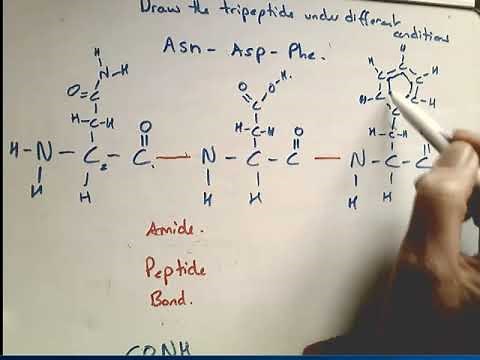 Draw the tripeptide under different
conditions
Asn - Asp - Phe.
H-N-C-C-N-C-C-N-C-C
Amide.
Peptide
Bond.
CONH